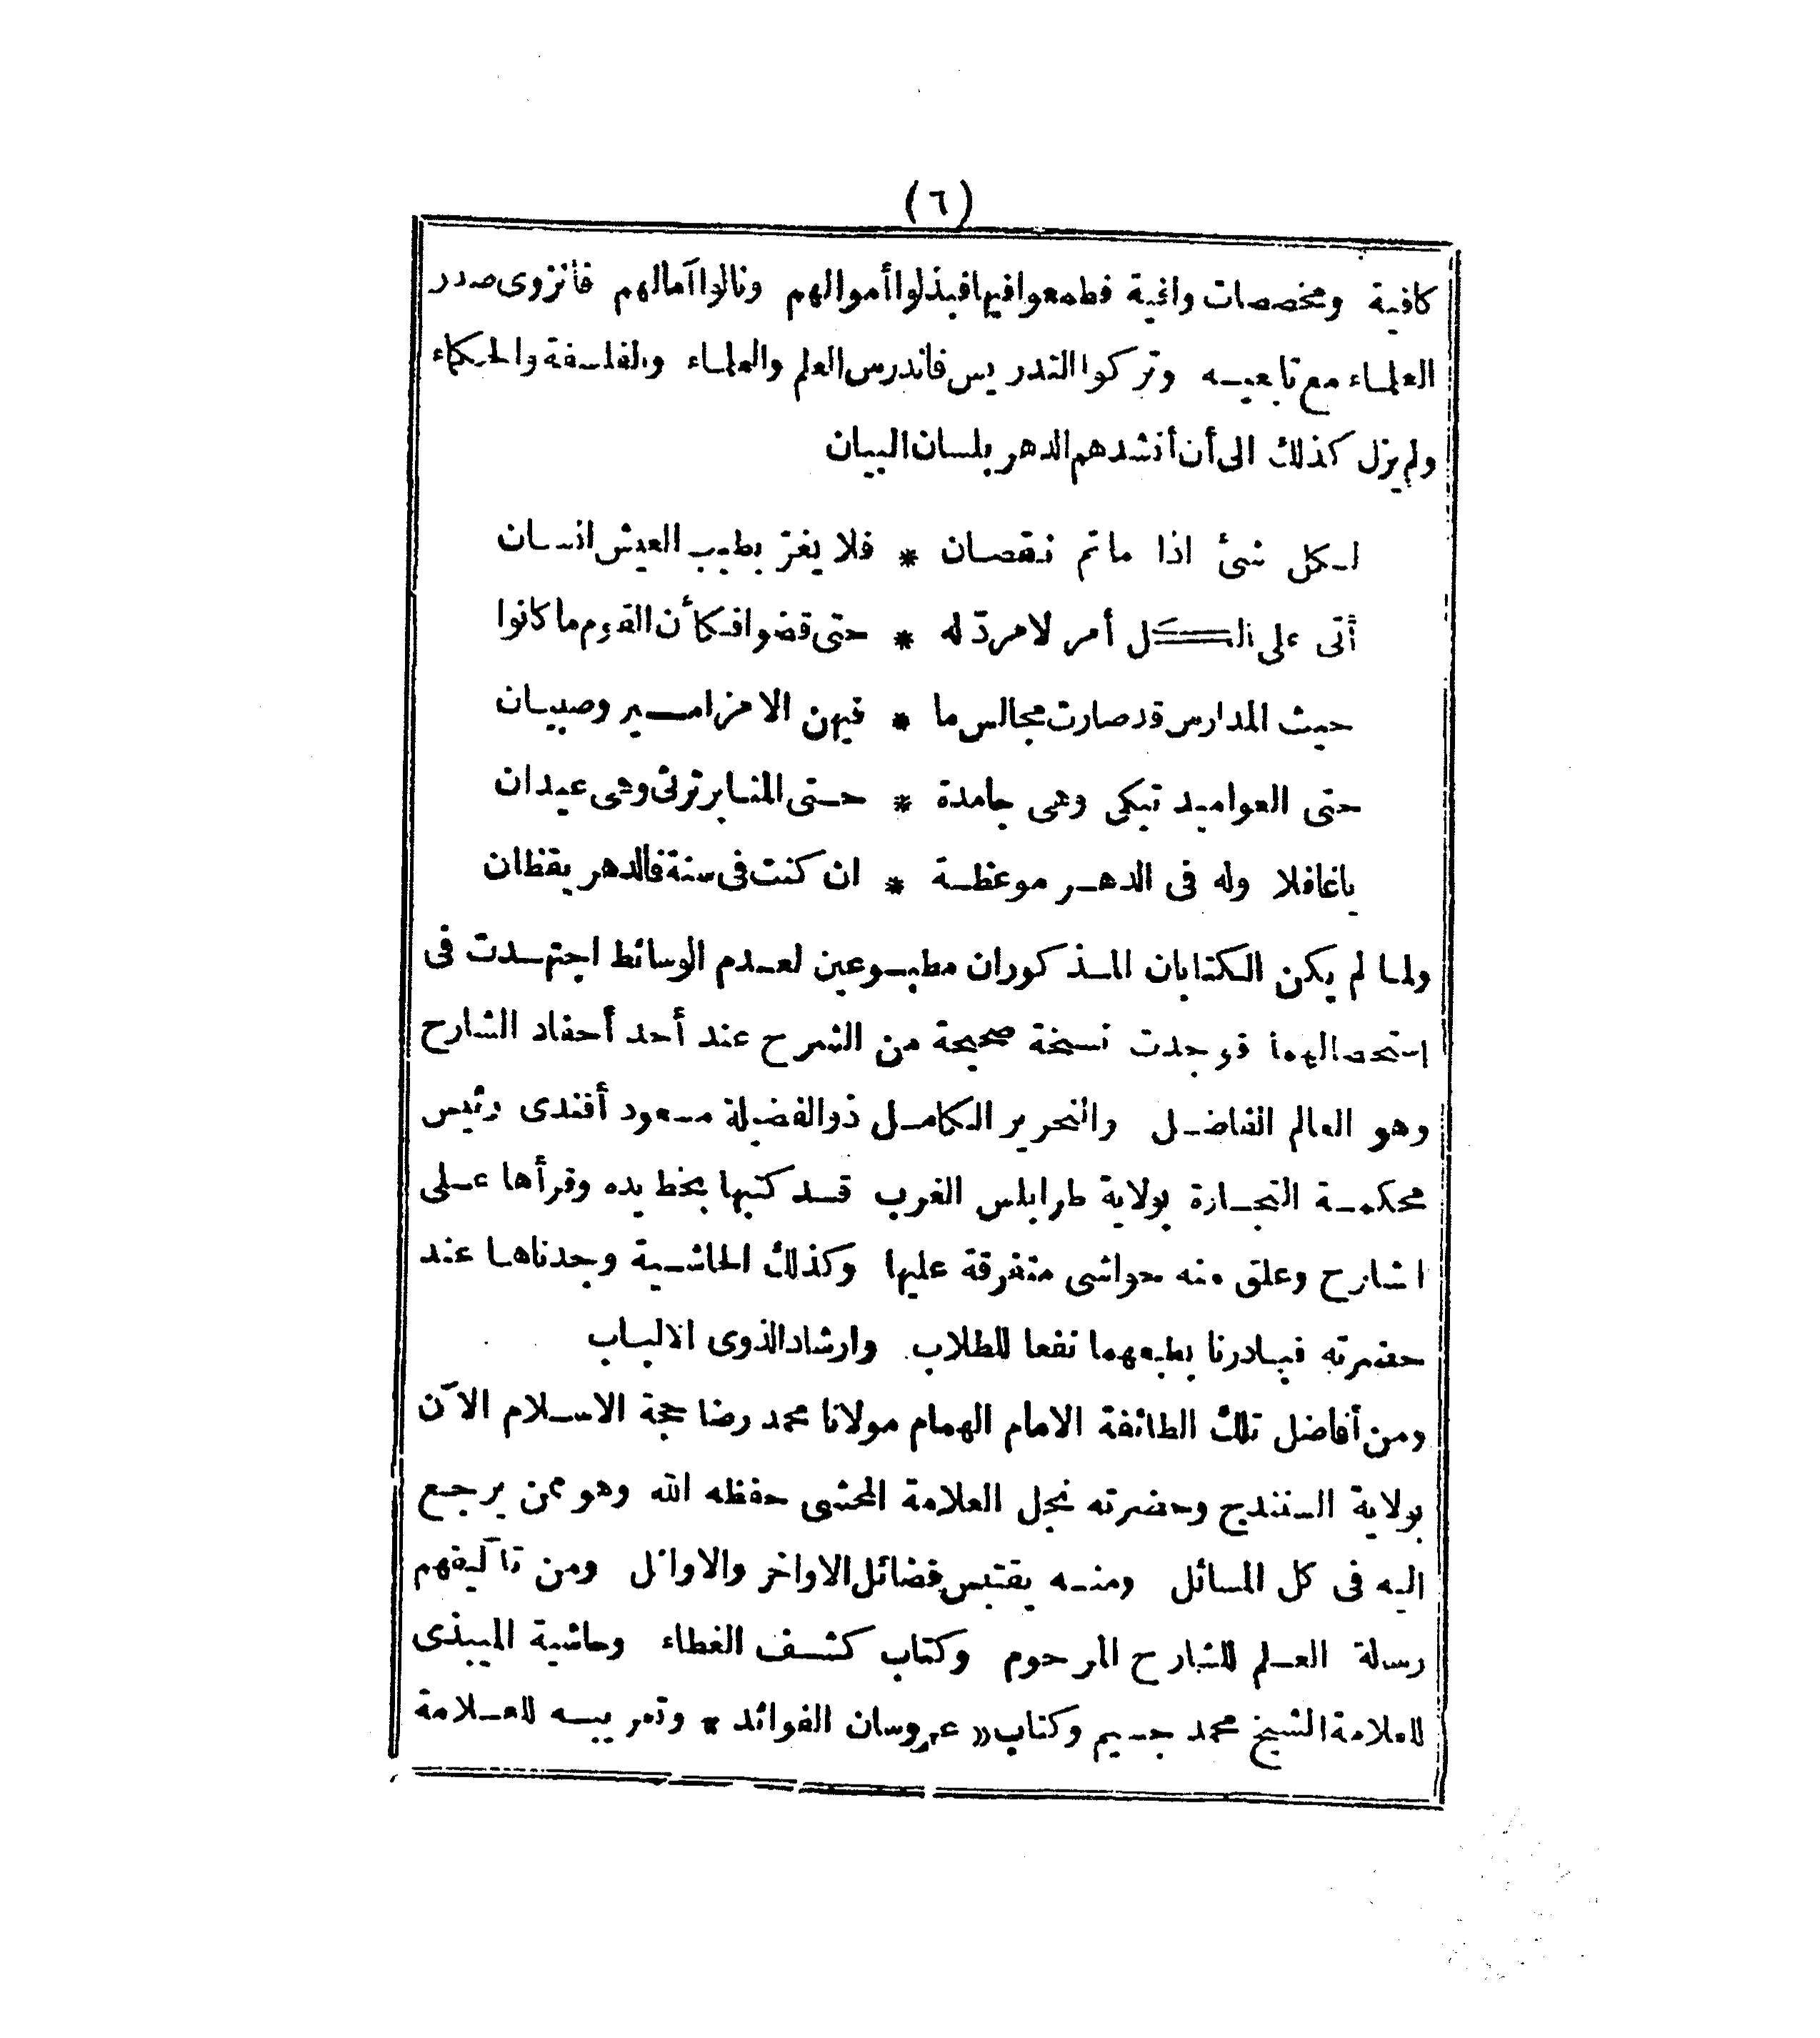 (٦)
كافية ومخصصات وافية فطمعوا فيها فبذلوا أموالهم ونالوا آمالهم فانزوى صدر
العلماء مع تابعيه وتركوا التدريس فاندرس العلم والعلماء والفلسفة والحكماء
ولم يزل كذلك الى أن أنشدهم الدهر بلسان البيان
لكل شئ اذا ماتم نقصان * فلا يغرّ بطيب العيش انسان
أتى على الكل أمر لا مردّ له * حتى قضوا فكأن القوم ما كانوا
حيث المدارس قد صارت مجالس ما * فيهن الا مزامير وصبيان
حتى العواميد تبكى وهى جامدة * حتى المنابر ترثى وهى عيدان
ياغافلا وله فى الدهر موعظة * ان كنت فى سنة فالدهر يقظان
ولما لم يكن الكتابان المذكوران مطبوعين لعدم الوسائط اجتهدت فى
استحصالهما فوجدت نسخة صحيحة من الشرح عند أحد أحفاد الشارح
وهو العالم الفاضل والنحرير الكامل ذو الفضيلة مسعود أفندى رئيس
محكمة التجارة بولاية طرابلس الغرب قد كتبها بخط يده وقرأها على
الشارح وعلق منه حواشى متفرقة عليها وكذلك الحاشية وجدناها عند
حضرته فبادرنا بطبعهما نفعا للطلاب وارشادا لذوى الالباب
ومن أفاضل تلك الطائفة الامام الهمام مولانا محمد رضا حجة الاسلام الآن
بولاية السنندج وحضرته نجل العلامة المحشى حفظه الله وهو ممن يرجع
اليه فى كل المسائل ومنه يقتبس فضائل الاواخر والاوائل ومن تآليفهم
رسالة العلم للشارح المرحوم وكتاب كشف الغطاء وحاشية الميبذى
للعلامة الشيخ محمد جسيم وكتاب « عروسان الفوائد * وتعريبه للعلامة